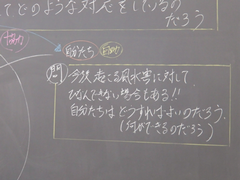 てどのような対応をしているの
だろう
自分たち
問
今後起こる風水害に対して
防げんできない場合もある!!
自分たちはどうすればよいのだろう
(何ができるのだろう)